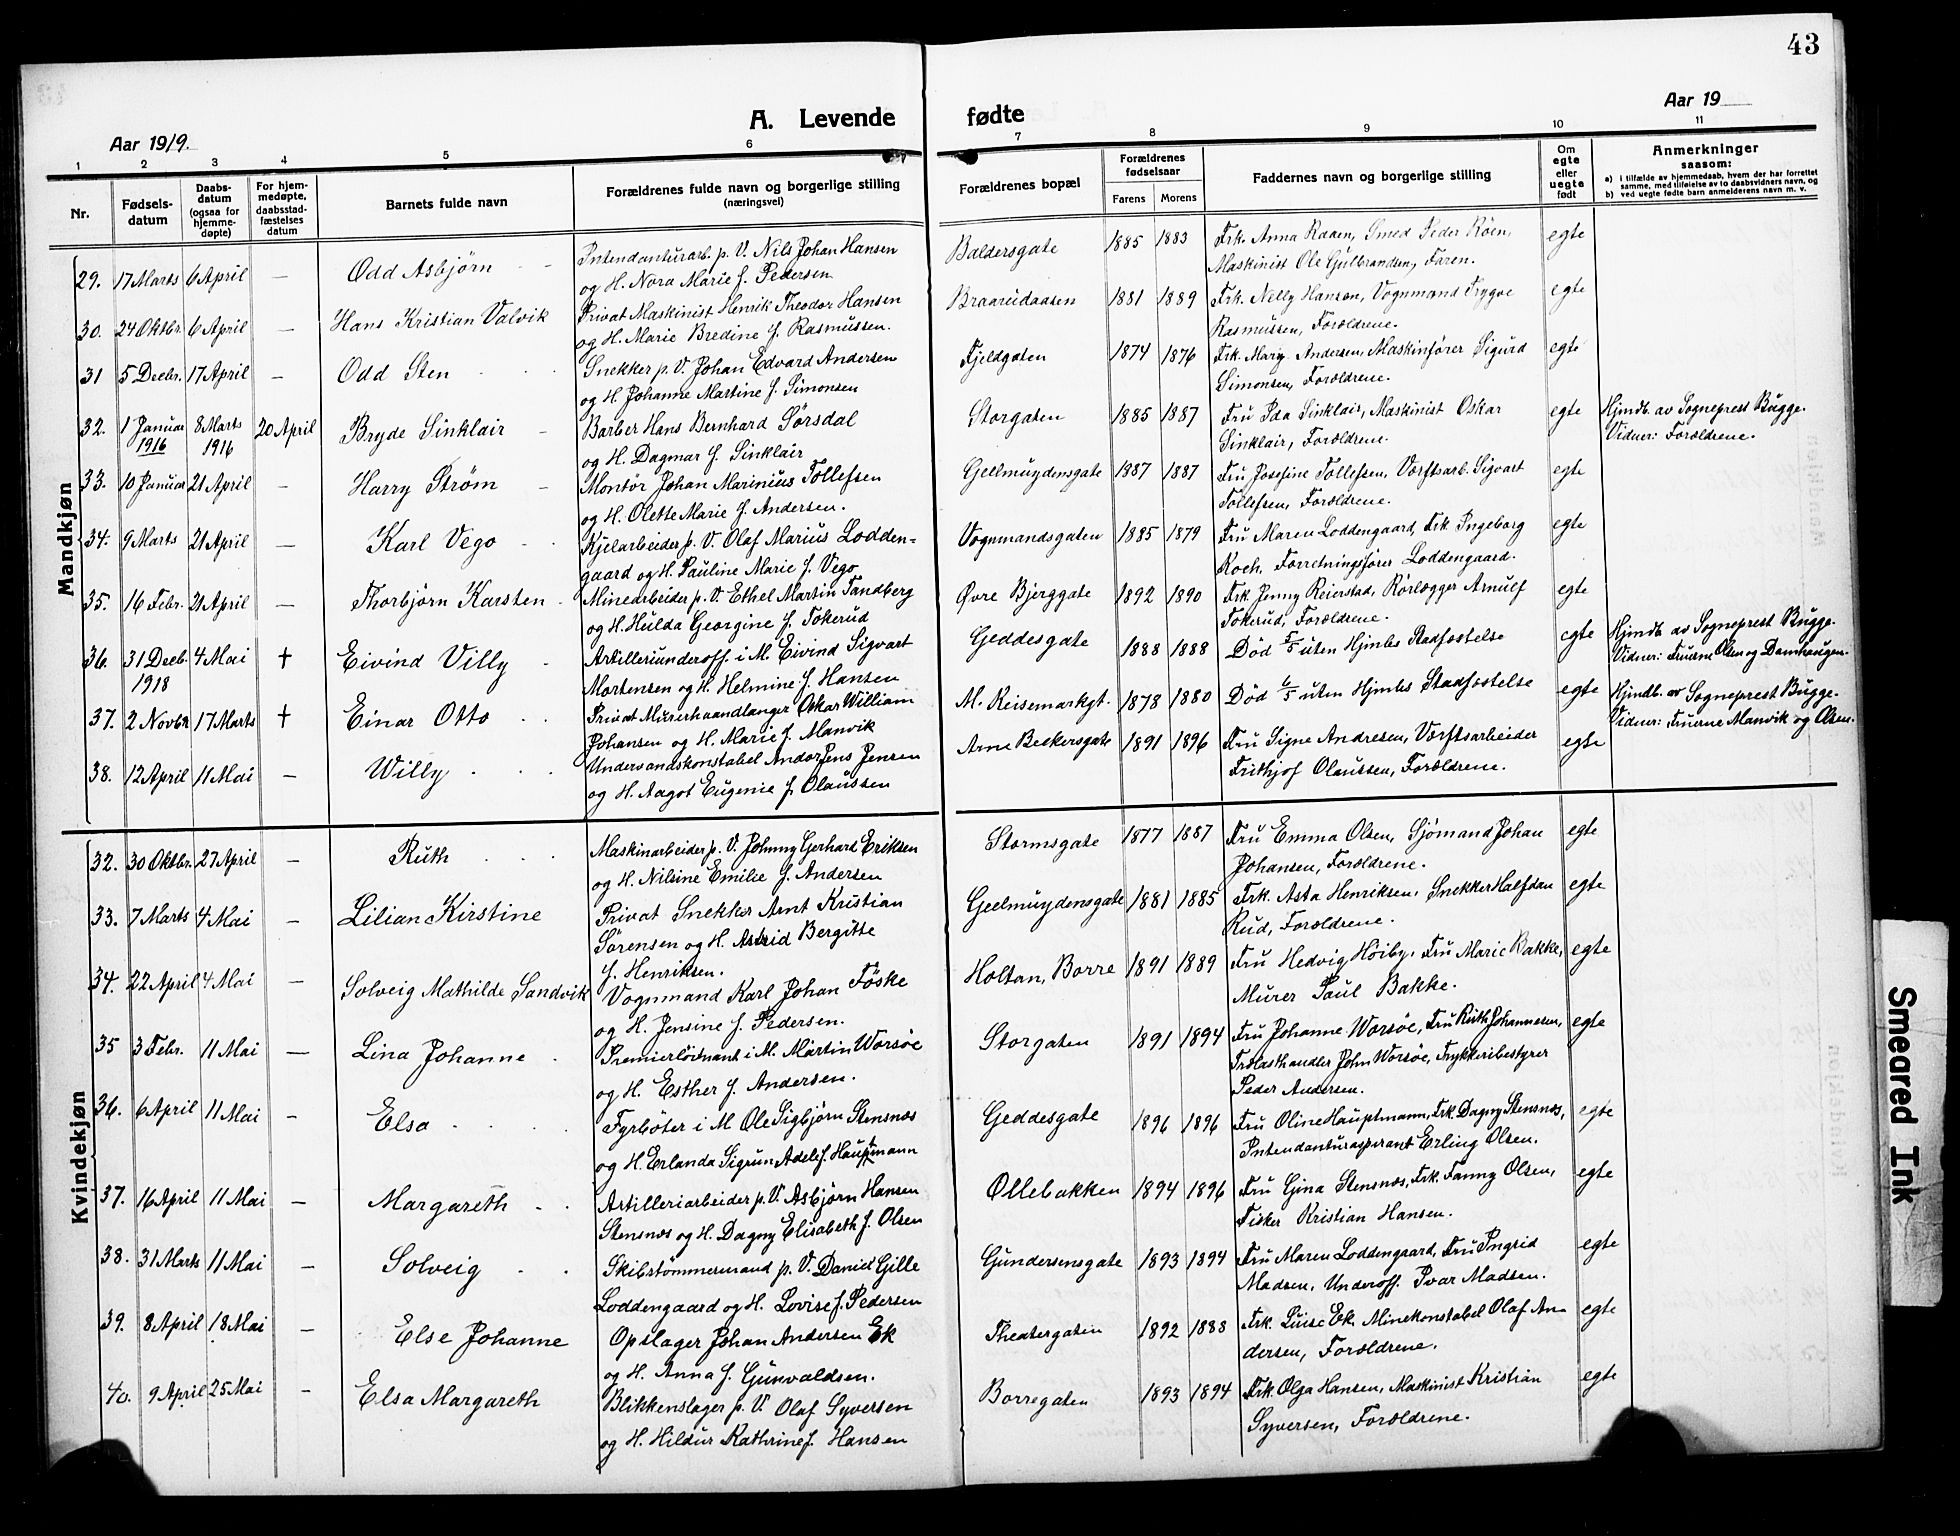 43
Aar 1919.
A. Levende fødte
Aar 19
1 2 3 4 5 6 7 8 9 10 11
Nr.
Fødsels-
datum
Daabs-
datum
(ogsaa for
hjemme-
døpte)
For hjem-
medøpte,
daabsstad-
fæstelses
datum
Barnets fulde navn
Forældrenes fulde navn og borgerlige stilling
(næringsvei)
Forældrenes bopæl
Forældrenes
fødselsaar
Farens Morens
Faddernes navn og borgerlige stilling
Om
egte
eller
uegte
født
Anmerkninger
saasom:
a) i tilfælde av hjemmedaab, hvem der har forrettet
samme, med tilføielse av to daabsvidners navn, og
b) ved uegte fødte barn anmelderens navn m. v.
Mandkjøn
29. 17 Marts 6 April — Odd Asbjørn
Intendanturarb. p. V. Nils Johan Hansen
og H. Nora Marie f. Pedersen
Baldersgate 1885 1883
Frk. Anna Raaen, Smed Peder Röen,
Maskinist Ole Gulbrandsen, Faren.
egte
30. 24 Oktbr. 6 April — Hans Kristian Valvik
Privat Maskinist Henrik Theodor Hansen
og H. Marie Bredine f. Rasmussen.
Braarudaasen 1881 1889
Frk. Nelly Hansen, Vognmand Trygve
Rasmussen, Forældrene.
egte
31 5 Decbr. 17 April — Odd Sten
Snekker p. V. Johan Edvard Andersen
og H. Johanne Martine f. Simonsen
Fjeldgaten 1874 1876
Frk. Mary Andersen, Maskinfører Sigurd
Simonsen, Forældrene.
egte
32. 1 Januar 8 Marts 20 April Bryde Sinklair
1916 1916
Barber Hans Bernhard Sørsdal
og H. Dagmar f. Sinklair
Storgaten 1885 1887
Fru Ida Sinklair, Maskinist Oskar
Sinklair, Forældrene.
egte
Hjmdb. av Sogneprest Bugge.
Vidner: Forældrene.
33. 10 Januar 21 April — Harry Strøm
Montør Johan Marinius Tollefsen
og H. Olette Marie f. Andersen.
Geelmuydensgate 1887 1887
Fru Josefine Tollefsen, Værftsarb. Sigvart
Tollefsen, Forældrene.
egte
34. 9 Marts 21 April — Karl Vego
Kjelarbeider p. V. Olaf Marius Lodden=
gaard og H. Pauline Marie f. Vego
Vognmandsgaten 1885 1879
Fru Maren Loddengaard, Frk. Ingeborg
Koch, Forretningsfører Loddengaard.
egte
35. 16 Febr. 21 April — Thorbjörn Karsten
Minearbeider p. V. Ethel Martin Tandberg
og H. Hulda Georgine f. Tokerud
Øvre Bjerggate 1892 1890
Frk. Jenny Reierstad, Rörlægger Arnulf
Tokerud, Forældrene.
egte
36. 31 Decb. 4 Mai † Eivind Villy
1918
Artilleriunderoff. i M. Eivind Sigvart
Mortensen og H. Helmine f. Hansen
Geddesgate 1888 1888
Död 5/5 uten Hjmbs Stadfæstelse
egte
Hjmdb. av Sogneprest Bugge.
Vidner: Fruerne Olsen og Damhaugen.
37. 2 Novbr 17 Marts † Einar Otto
Privat Murerhaandlanger Oskar William
Johansen og H. Marie f. Manvik
M. Reisemarkgt. 1878 1880
Död 6/5 uten Hjmbs Stadfæstelse
egte
Hjmdb. av Sogneprest Bugge.
Vidner: Fruerne Manvik og Olsen.
38. 12 April 11 Mai — Willy
Undervandskonstabel Andor Jens Jensen
og H. Aagot Eugenie f. Olaussen
Arne Beckersgate 1891 1896
Fru Signe Andresen, Værftsarbeider
Frithjof Olaussen, Forældrene.
egte
Kvindekjøn
32. 30 Oktbr. 27 April — Ruth
Maskinarbeider p. V. Johnny Gerhard Eriksen
og H. Nilsine Emilie f. Andersen
Stormsgate 1877 1887
Fru Emma Olsen, Sjömand Johan
Johansen, Forældrene.
egte
33. 7 Marts 4 Mai — Lilian Kirstine
Privat Snekker Arnt Kristian
Sørensen og H. Astrid Bergitte
f. Henriksen.
Geelmuydensgate 1881 1885
Frk. Asta Henriksen, Snekker Halfdan
Rud, Forældrene.
egte
34. 22 April 4 Mai — Solveig Mathilde Sandvik
Vognmand Karl Johan Föske
og H. Jensine f. Pedersen.
Holtan, Borre 1891 1889
Fru Hedvig Höiby, Fru Marie Bakke,
Murer Paul Bakke.
egte
35 3 Febr. 11 Mai — Lina Johanne
Premierlöitnant i M. Martin Worsöe
og H. Esther f. Andersen.
Storgaten 1891 1894
Fru Johanne Worsöe, Fru Ruth Johannesen,
Trælasthandler John Worsöe, Trykkeribestyrer
Peder Andersen.
egte
36. 6 April 11 Mai — Elsa
Fyrböter i M Ole Sigbjörn Stensnæs
og H. Erlanda Sigrun Adele f. Hauptmann
Geddesgate 1896 1896
Fru Oline Hauptmann, Frk. Dagny Stensnæs,
Intendanturaspirant Erling Olsen.
egte
37. 16 April 11 Mai — Margareth
Artilleriarbeider p. V. Asbjörn Hansen
Stensnæs og H. Dagny Elisabeth f. Olsen
Ollebakken 1894 1896
Fru Gina Stensnæs, Frk. Fanny Olsen,
Fisker Kristian Hansen.
egte
38. 31 Marts 11 Mai — Solveig
Skibstømmermand p. V. Daniel Gille
Loddengaard og H. Lovise f. Pedersen
Gundersensgate 1893 1894
Fru Maren Loddengaard, Fru Ingrid
Madsen, Underoff. Ivar Madsen.
egte
39. 8 April 18 Mai — Else Johanne
Opslager Johan Andersen Ek
og H. Anna f. Gunvaldsen.
Theatergaten 1892 1888
Frk. Luise Ek, Minekonstabel Olaf An=
dersen, Forældrene.
egte
40. 9 April 25 Mai — Elsa Margareth
Blikkenslager p. V. Olaf Syversen
og H. Hildur Kathrine f. Hansen
Borregaten 1893 1894
Frk. Olga Hansen, Maskinist Kristian
Syversen, Forældrene.
egte
Smeared Ink